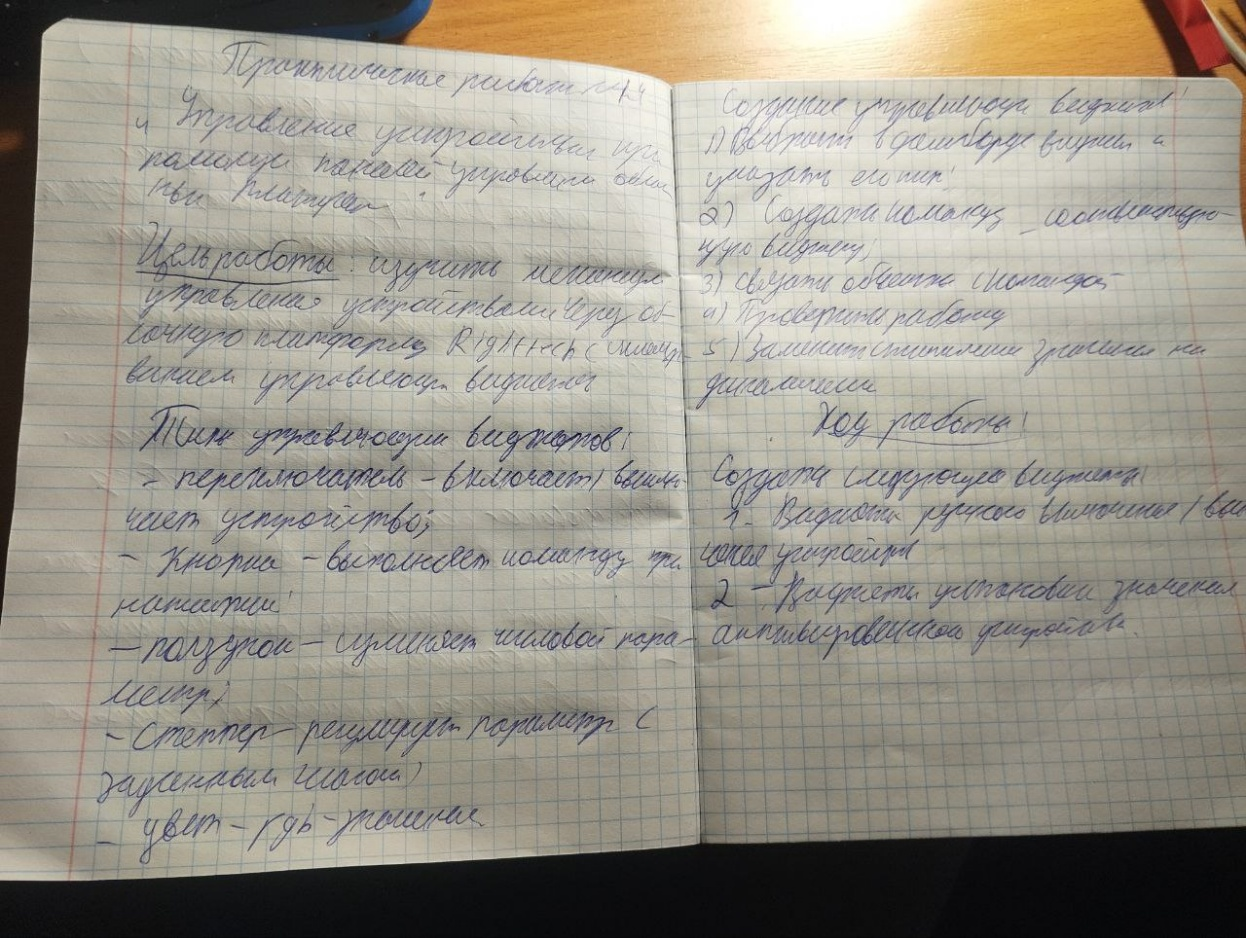 Практическая работа №
"Управление устройствами при
помощи панелей управления облач
ных платформ"
Цель работы: изучить механизм
управления устройствами через об
лачную платформу Rightech с использо-
ванием управляющих виджетов
Типы управляющих виджетов:
- переключатель - включает/выклю-
чает устройство;
- Кнопка - выполняет команду при
нажатии;
- ползунок - изменяет числовой пара-
метр;
- Степпер - регулирует параметр с
заданным шагом;
- цвет - rgb-значение
Создание управляющих виджетов:
1) Выбрать в дашборде виджет и
указать его тип;
2) Создать команду соответствую-
щую виджету;
3) связать объекта с командой
4) Проверить работу
5) Заменить статические значения на
динамические
Ход работы:
Создать следующие виджеты
1 - Виджеты ручного включения/вык
чения устройств
2 - Виджеты установки значения
устройства.